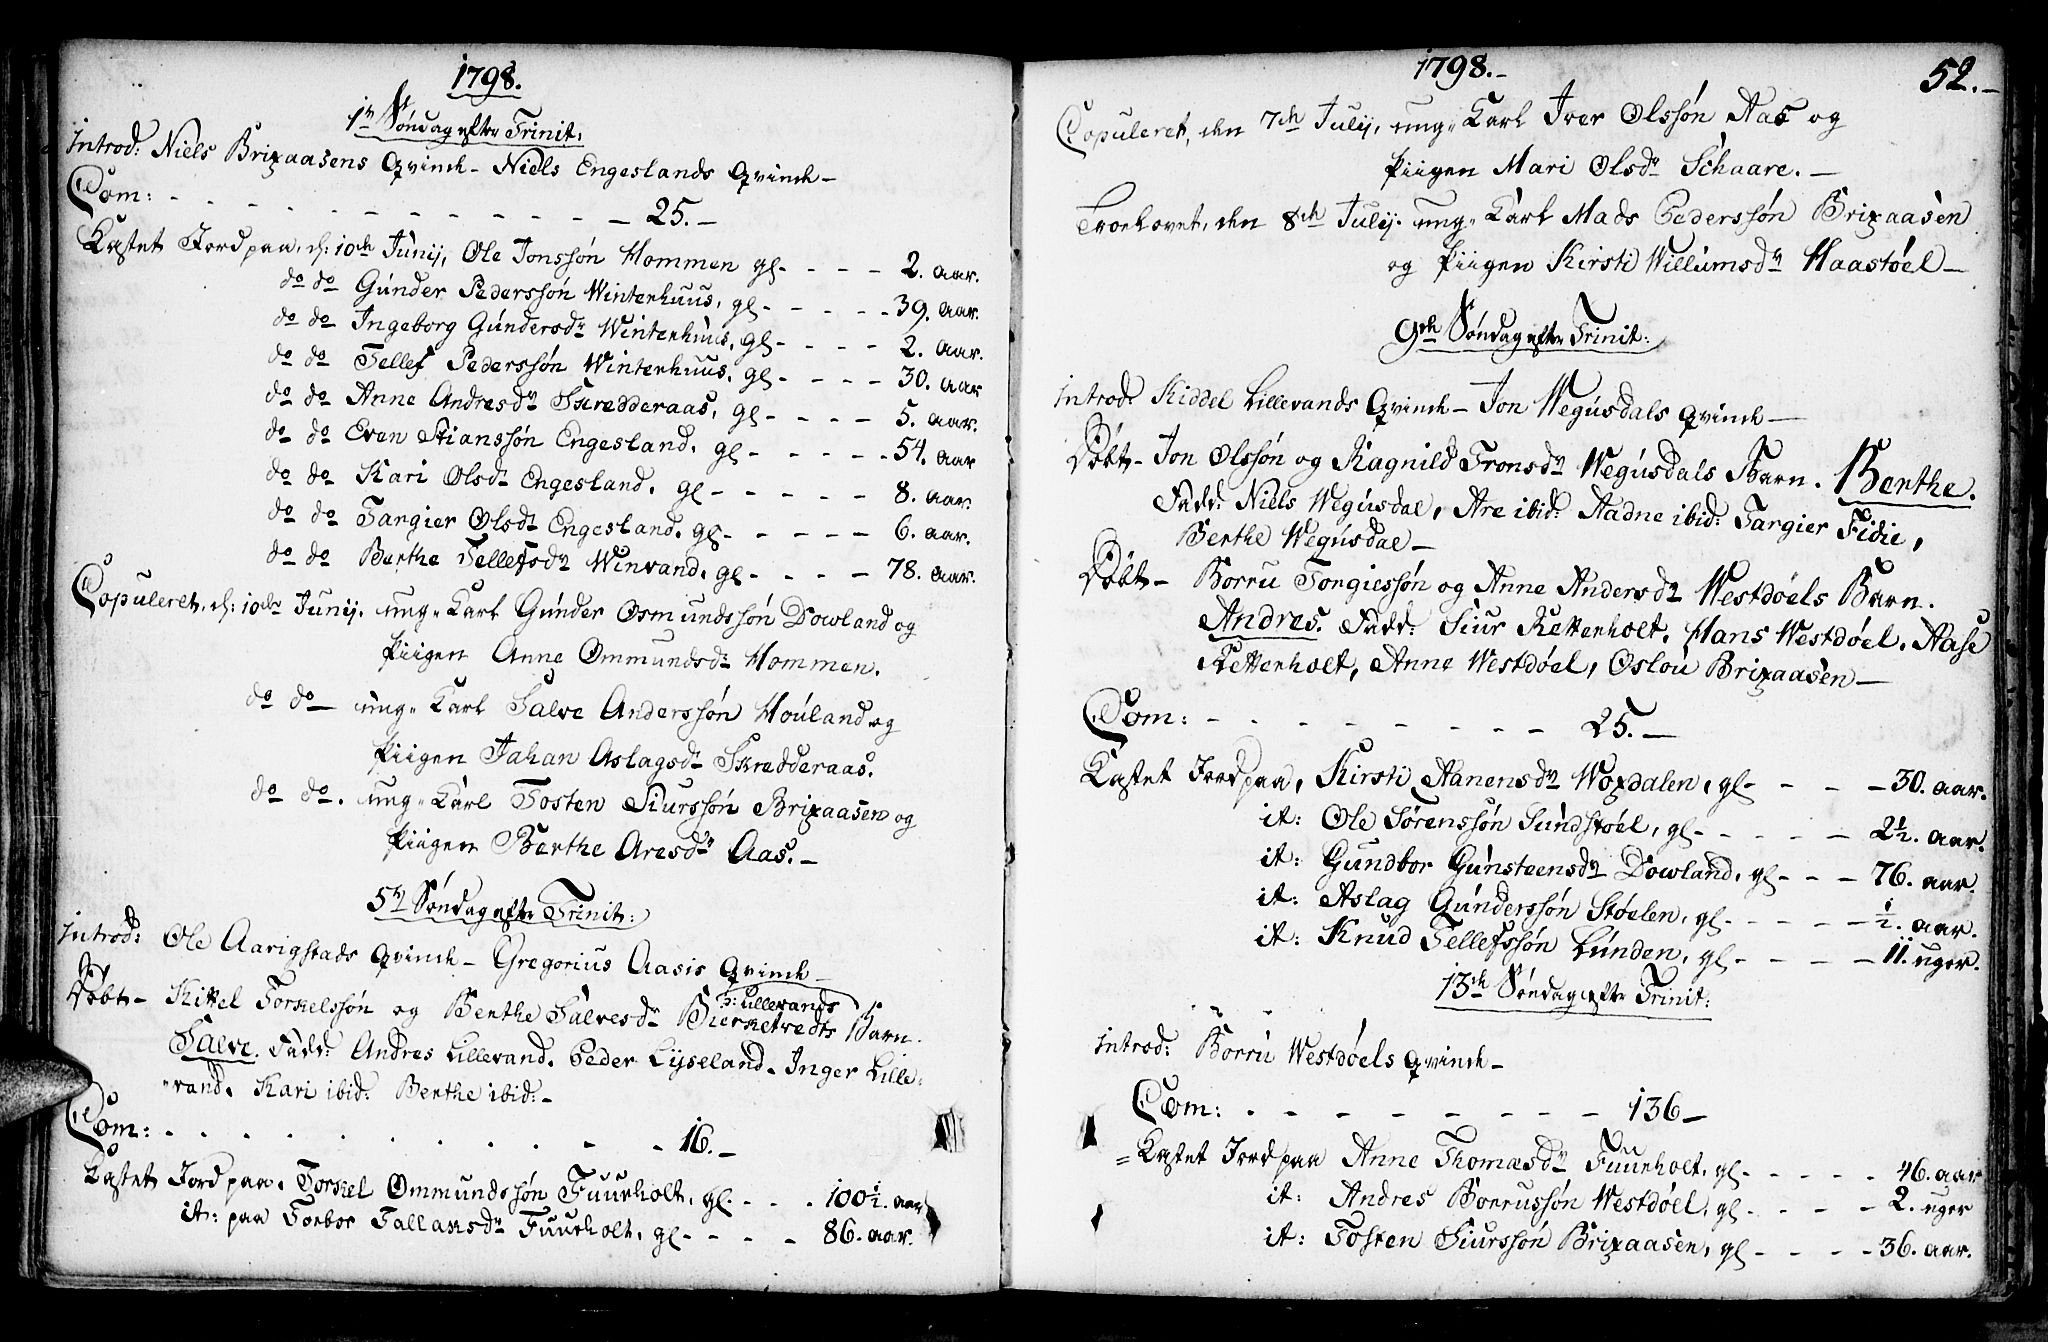 1798.
1ste Søndag efter Trinit:
Introd: Niels Brixaasens Qvinde – Niels Engeslands Qvinde –
Com: - - - - - - - - - - - - 25. –
Kastet Jord paa, d: 10de Junij, Ole Jonssøn Hommen gl - - - - 2. aar.
do do Gunder Pederssøn Winterhuus, gl - - - - - 39. aar.
do do Ingeborg Gundersdr Winterhuus, gl - - - - 2. aar.
do do Tellef Pederssøn Winterhuus, gl - - - - 30. aar
do do Anne Andresdr Skredderaas, gl - - - - 5. aar.
do do Even Stianssøn Engesland, gl - - - - - 54. aar
do do Kari Olsdr Engesland, gl - - - - - 8. aar.
do do Targier Olsdr Engesland, gl - - - - - 6. aar.
do do Berthe Tellefsdr Winvand, gl - - - - 78. aar.
Copuleret, d: 10de Junij. ung=Karl Gunder Osmundssøn Dowland og
Piigen Anne Ommundsdr Hommen.
do do – ung=Karl Salve Anderssøn Houland og
Piigen Jahan Aslagsdr Skredderaas.
do do. ung=Karl Tosten Siurssøn Brixaasen og
Piigen Berthe Aresdr Aas. –
5te Søndag efter Trinit:
Introd: Ole Aarigstads Qvinde – Gregorius Aasis Qvinde –
Døbt – Kittel Torkelssøn og Berthe Salvesdr Bierketvedts Barn.
ɔ: Lillevands
Salve. Fadd: Andres Lillevand. Peder Lyseland. Inger Lille=
=vand. Kari ibid: Berthe ibid: –
Com: - - - - - - - - - - 16. –
Kastet Jord paa, Torkel Ommundssøn Fuurholt, gl - - - 100½. aar
it: paa Torbor Tallaksdr Fuurholt, gl - - - - 86. aar.
1798. –
52. –
Copuleret, den 7de Julij, ung=Karl Iver Olssøn Aas og
Piigen Mari Olsdr Schaare. –
Troelovet, den 8de Julij. ung=Karl Mads Pederssøn Brixaasen
og Piigen Kirsti Willumsdr Haastøel –
9de Søndag efter Trinit:
Introd: Kiddel Lillevands Qvinde – Jon Wegusdals Qvinde –
Døbt – Jon Olssøn og Ragnild Tronsdr Wegusdals Barn. Berthe.
Fadd: Niels Wegusdal, Are ibid: Aadne ibid: Targier Fidie,
Berthe Wegusdal –
Døbt – Borru Torgiessøn og Anne Andersdr Westdøels Barn.
Andres. Fadd: Siur Rettenholt, Hans Westdøel. Aase
Rettenholt, Anne Westdøel, Oslou Brixaasen –
Com: - - - - - - - - 25. –
Kastet Jord paa, Kirsti Aanensdr Woxdalen, gl - - - - 30. aar.
it: Ole Sørenssøn Sundstøel, gl - - - - - 2½. aar.
it: Gundbor Gunsteensdr Dowland, gl - - - 76. aar.
it: Aslag Gunderssøn Støelen, gl - - - - - ½. aar.
it: Knud Tellefssøn Lunden, gl - - - - 11. uger.
13de Søndag efter Trinit:
Introd: Borru Westdøels Qvinde –
Com: - - - - - - - - 136 –
Kastet Jord paa Anne Thomæsdr Fuurholt, gl - - - - 46. aar
it: Andres Borrussøn Westdøel, gl - - - - 2. uger
it: Tosten Siurssøn Brixaasen, gl - - - - 36. aar.